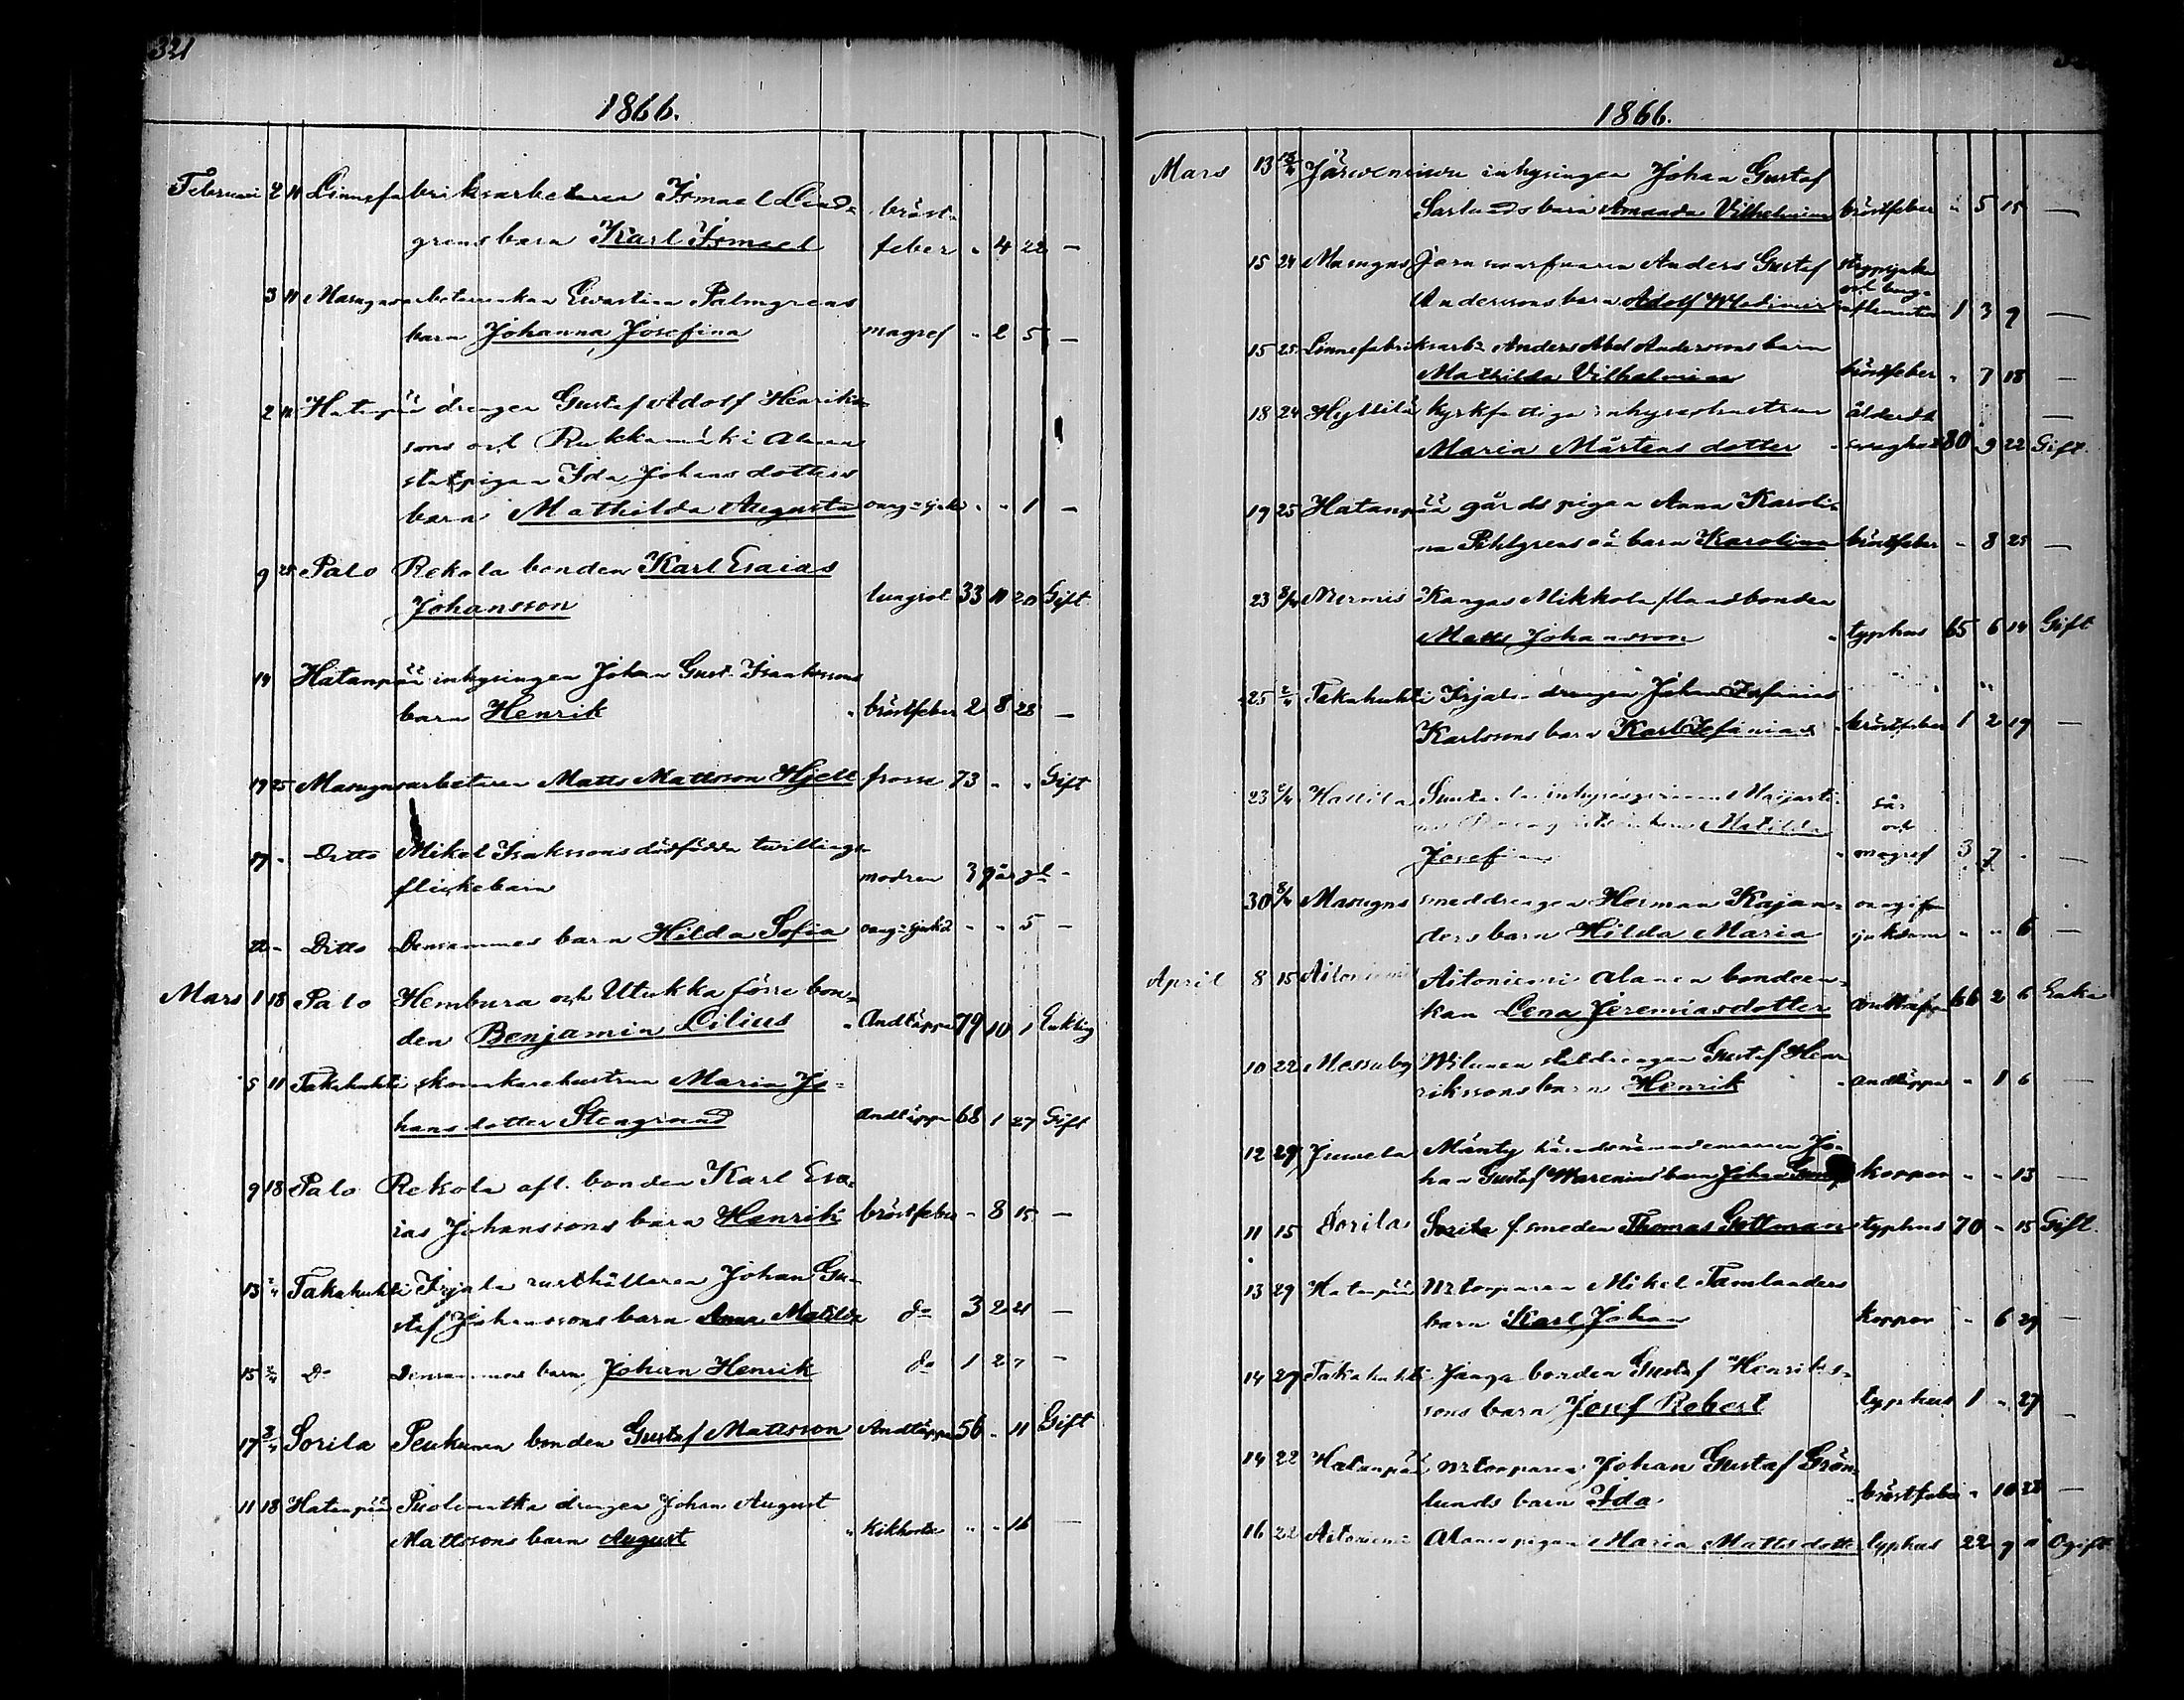 321
1866.
Februari 2 11 Linnefabriksarbetaren Ismael Lind= bröst=
grens barn Karl Ismael feber " 4 22 —
3 11 Masugnsarbeterskan Palmgrens
barn Johanna Josefina magref " 2 5 —
2 11 Hatanpää drengen Gustaf Adolf Henriks=
sons och Rukkamäki
pigan Ida Johansdotters
barn Mathilda Augusta " " 1 —
9 25 Palo Rekola bonden Karl Esaias
Johansson lungsot 33 11 20 Gift
14 Hatanpää inhysingen Johan Gust. Isaakssons
barn Henrik " bröstfeber 2 8 28 —
19 25 Masugnsarbetaren Matts Mattsson Hjelt frossa 73 " " Gift
17 - Ditto Mikel Isakssons dödfödda tvillings=
flickebarn modren 39 år gl -
22 - Ditto Densammes barn Hilda Sofia " " 5 —
Mars 1 18 Palo Hembura och Utukka förre bon=
den Benjamin Lilius " Andtäppa 79 10 1 Enkling
5 11 Takahuhti skomakarehustrun Maria Jo=
hansdotter Stengrund Andtäppa 68 1 27 Gift
9 18 Palo Rekola afl. bonden Karl Esa=
ias Johanssons barn Henrik bröstfeber - 8 15 —
13 2/4 Takahuhti Irjala rusthållaren Johan Gu=
staf Johanssons barn Anna Matilda do 3 2 21 —
15 2/4 Do Densammes barn Johan Henrik do 1 2 7 —
17 8/4 Sorila Peukunen bonden Gustaf Mattsson Andtäppa 56 " 11 Gift
11 18 Hatanpää Puolimatka drengen Johan August
Mattssons barn August " Kikhosta " " 16 —
1866.
Mars 13 inhysingen Johan Gustaf
barn Amanda Vilhelmina bröstfeber " 5 15 —
15 24 Masugns Anders Gustaf strypsjuka
Anderssons barn Adolf Wladimir 1 3 7 —
15 25 Linnefabriksarb. Anders Abel Anderssons barn
Mathilda Vilhelmina bröstfeber " 7 18 —
18 24 Hyllilä kyrkfattiga inhyseshustrun ålderdr
Maria Mårtens dotter svaghet 80 9 22 Gift.
19 25 Hatanpää gårds pigan Anna Karoli=
na Pihlgrens oä barn Karolina bröstfeber - 8 25 —
23 8/4 Kangas Mikkola flandbonden
Matts Johansson " typhus 65 6 14 Gift
25 2/4 Takahuhti Irjala drengen Johan Zefanias
Karlssons barn Karl Zefanias bröstfeber 1 2 19 —
23 2/4 Hallila
Matilda och
Josefina " magref 3 7 " —
30 8/4 Masugns smeddrengen Herman Kajan=
ders barn Hilda Maria " " 6 —
April 8 15 Aitoniemi Aitoniemi Alanen bondeen=
kan Lena Jeremiasdotter Andtäppa 66 2 6 Enka
10 22 Messuby Wilunen Gustaf Hen=
rikssons barn Henrik " Andtäppa " 1 6 —
12 29 Juvela Mänty häradsnämndemannen Jo=
han Gustaf barn Johan Gustaf koppor " " 13 —
11 15 Sorila Sorila f. smeden Thomas Gottman typhus 70 " 15 Gift.
13 29 Hatanpää Mikel Tamlanders
barn Karl Johan koppor " 6 29 —
14 29 Takahuhti Janga bonden Gustaf Henriks=
sons barn Josef Robert typhus 1 " 27 —
14 22 Hatanpää Johan Gustaf Grön=
lunds barn Ida " bröstfeber " 10 28 —
16 22 Aitoniemi Alanen pigan Maria Mattsdotter typhus 22 9 Ogift